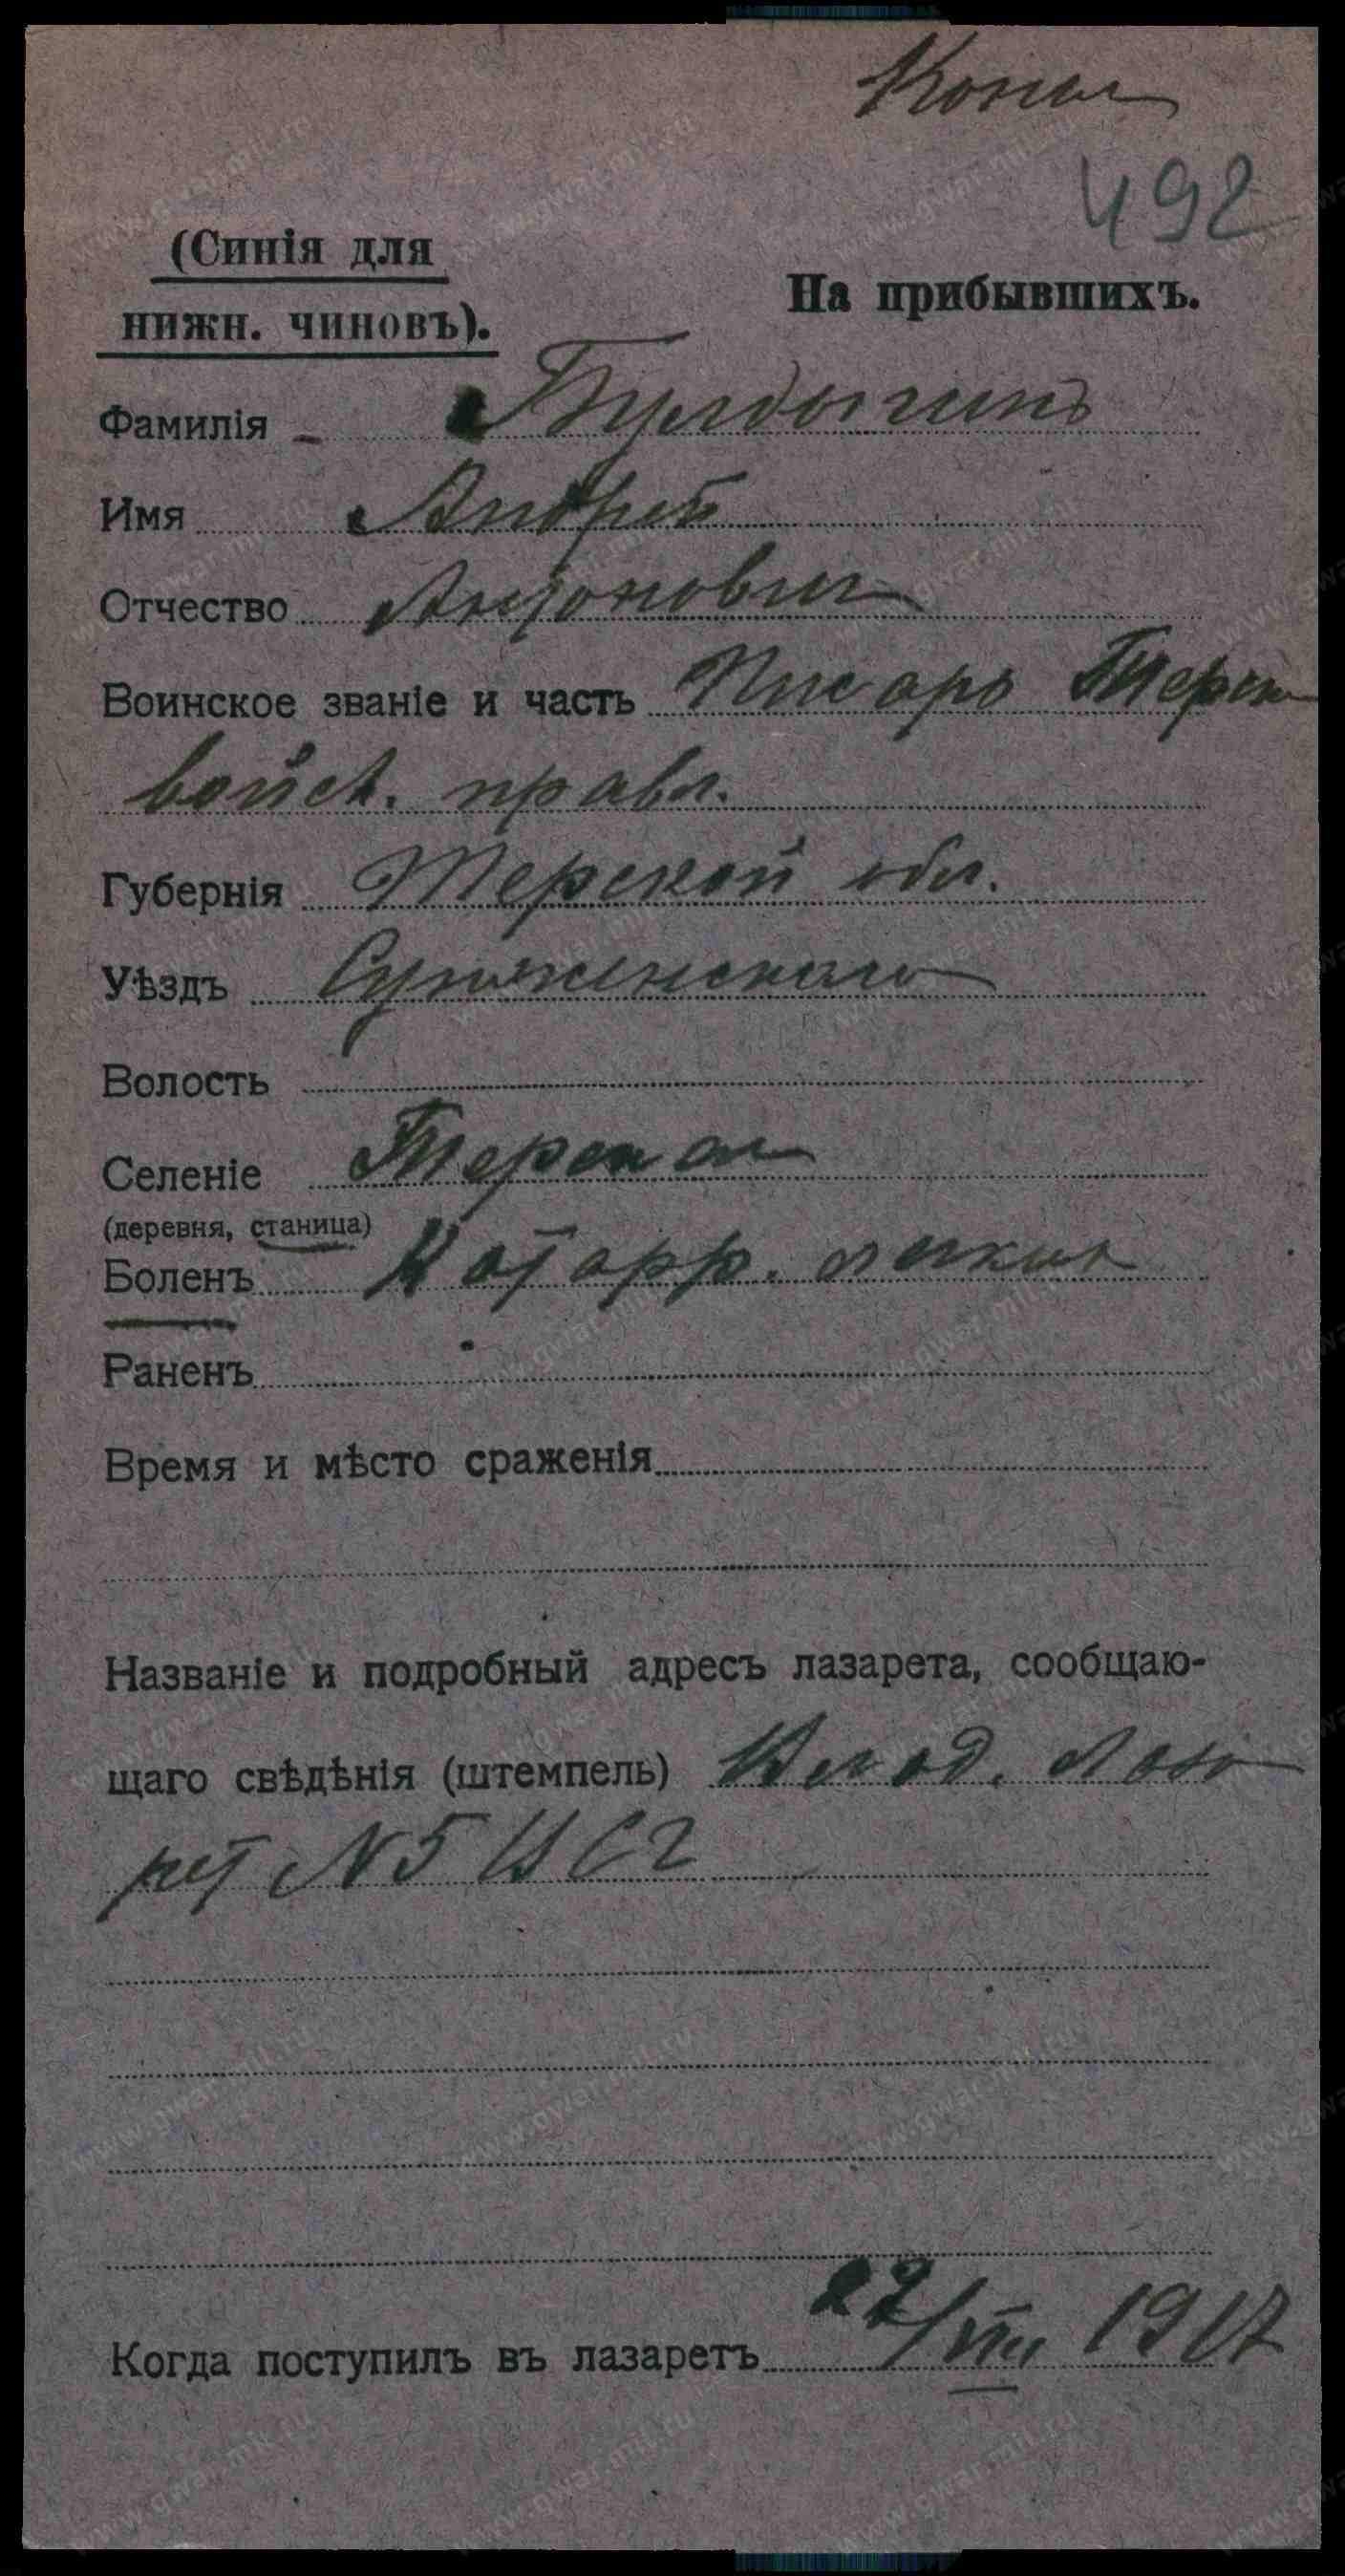 Копия
492
(Синія для
нижн. чиновъ).
На прибывшихъ.
Фамилія Булдыгинъ
Имя Андрей
Отчество Антонович
Воинское званіе и часть Писарь Терск
войск. правл.
Губернія Терской обл.
Уѣздъ Сунженскаго
Волость
Селеніе Терская
(деревня, станица)
Боленъ Катарр. легких
Раненъ
Время и мѣсто сраженія
Названіе и подробный адресъ лазарета, сообщаю-
щаго свѣдѣнія (штемпель) Влад. Лаза
рет N 5 ВСГ
Когда поступилъ въ лазаретъ 22/VIII 1917
www.gwar.mil.ru